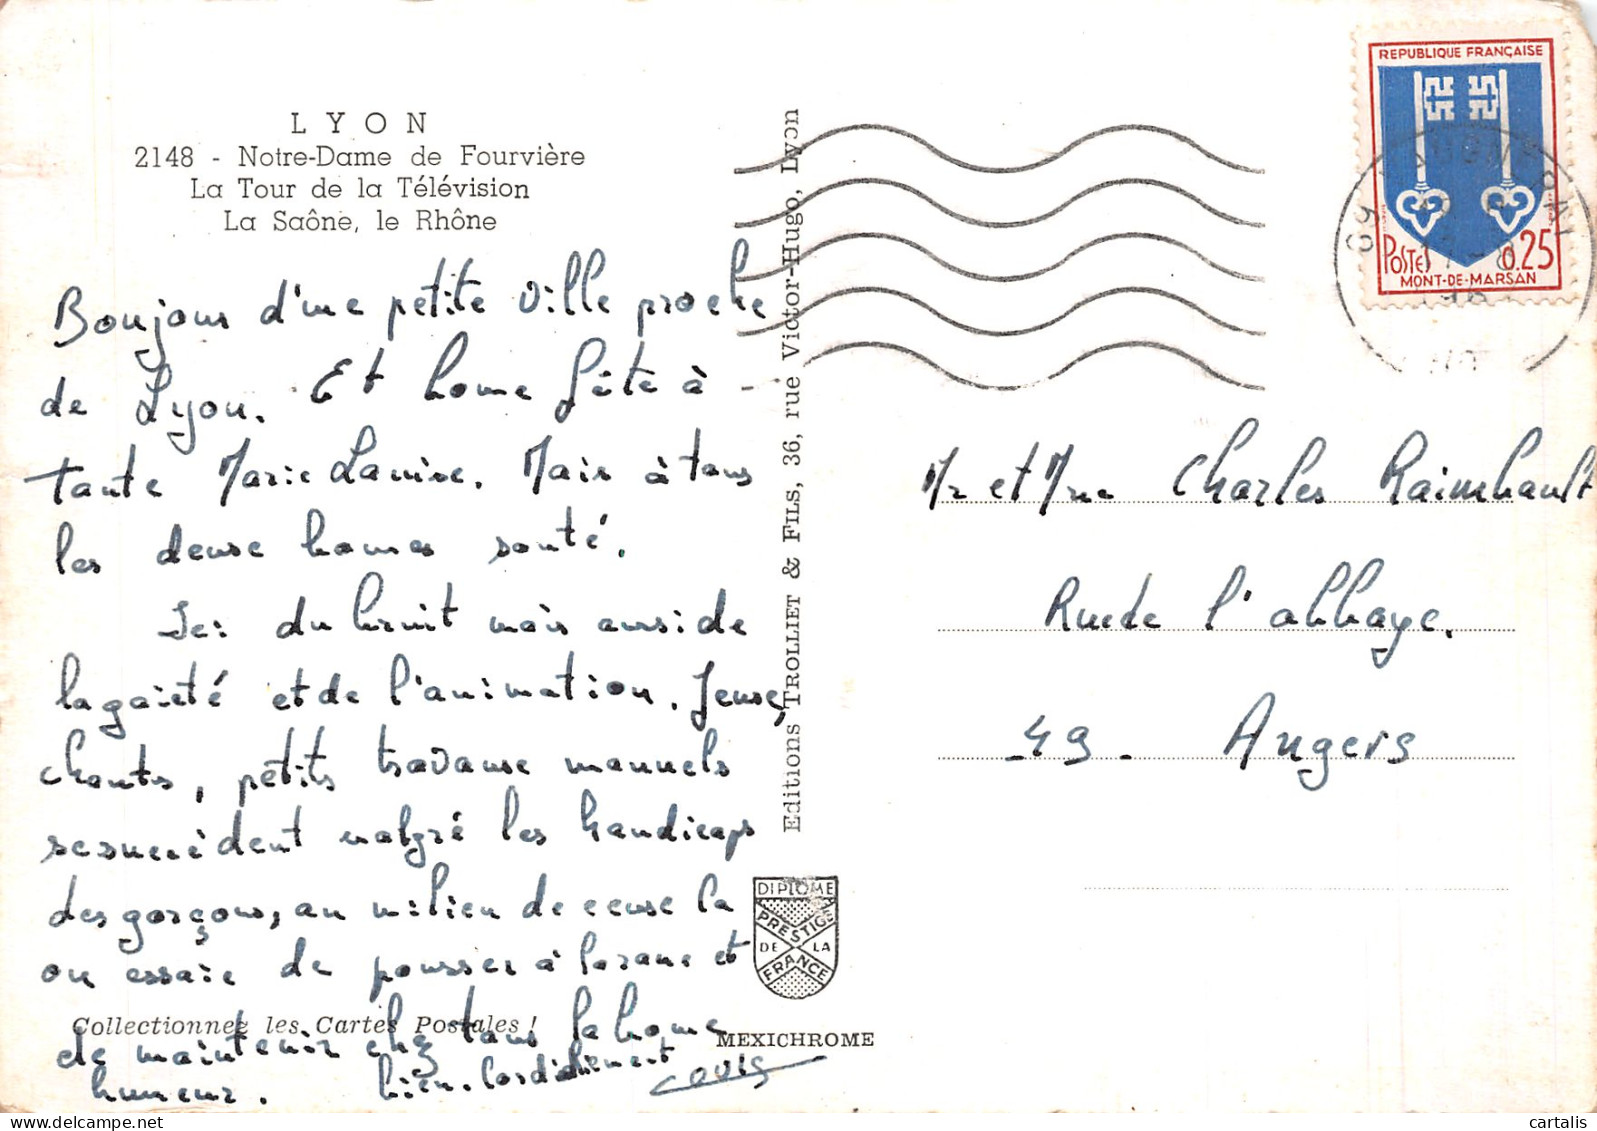 LYON
2148 - Notre-Dame de Fourvière
La Tour de la Télévision
La Saône, le Rhône
Bonjour d'une petite ville proche
de Lyon. Et bonne fête à
tante Marie Louise. Mais à tous
les deux bonnes santé.
Ici du bruit mais aussi de
la gaieté et de l'animation. Jeux,
chants, petits travaux manuels
se succèdent malgré les handicaps
des garçons, au milieu de ceux la
on essaie de pousser à                et
de maintenir chez tous la bonne
humeur. bien. Cordialement
Louis
Collectionnez les Cartes Postales !
Editions TROLLIET & FILS, 36, rue Victor-Hugo, Lyon
DIPLOME
PRESTIGE
DE LA
FRANCE
MEXICHROME
REPUBLIQUE FRANÇAISE
POSTES 0,25
MONT-DE-MARSAN
Mr et Mme Charles Raimbault
Rue de l'abbaye.
49 - Angers
cartalis